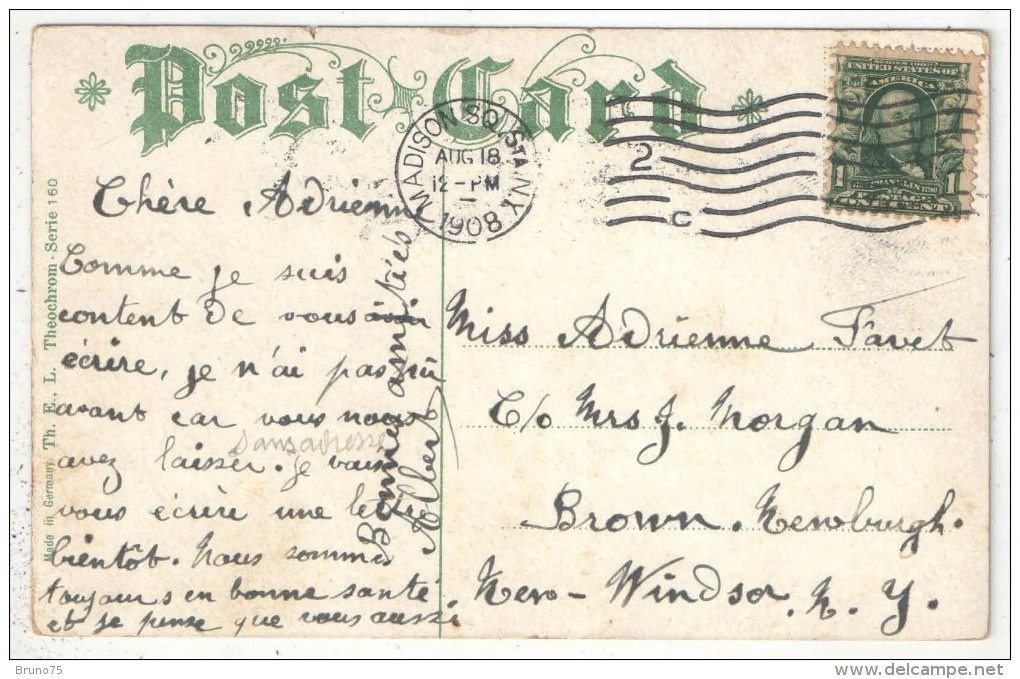 Post Card
MADISON SQ. STA. N.Y.
AUG 18
12-PM
1908
2
C
SERIES 1902
UNITED STATES OF
AMERICA
1 1
FRANKLIN
POSTAGE
ONE CENT
Made in Germany Th. E. L. Theochrom - Serie 160
Chère Adrienne
Comme je suis
content de vous
écrire, je n'ai pas pu
avant car vous nous
avez laisser. je vais
sans adresse
vous écrire une lettre
bientôt. Nous sommes
toujours en bonne santé
et je pense que vous aussi
Bonnes amitiés
Albert
Miss Adrienne Favet
C/o Mrs J. Morgan
Brown. Newburgh.
New-Windsor. N. Y.
Bruno75